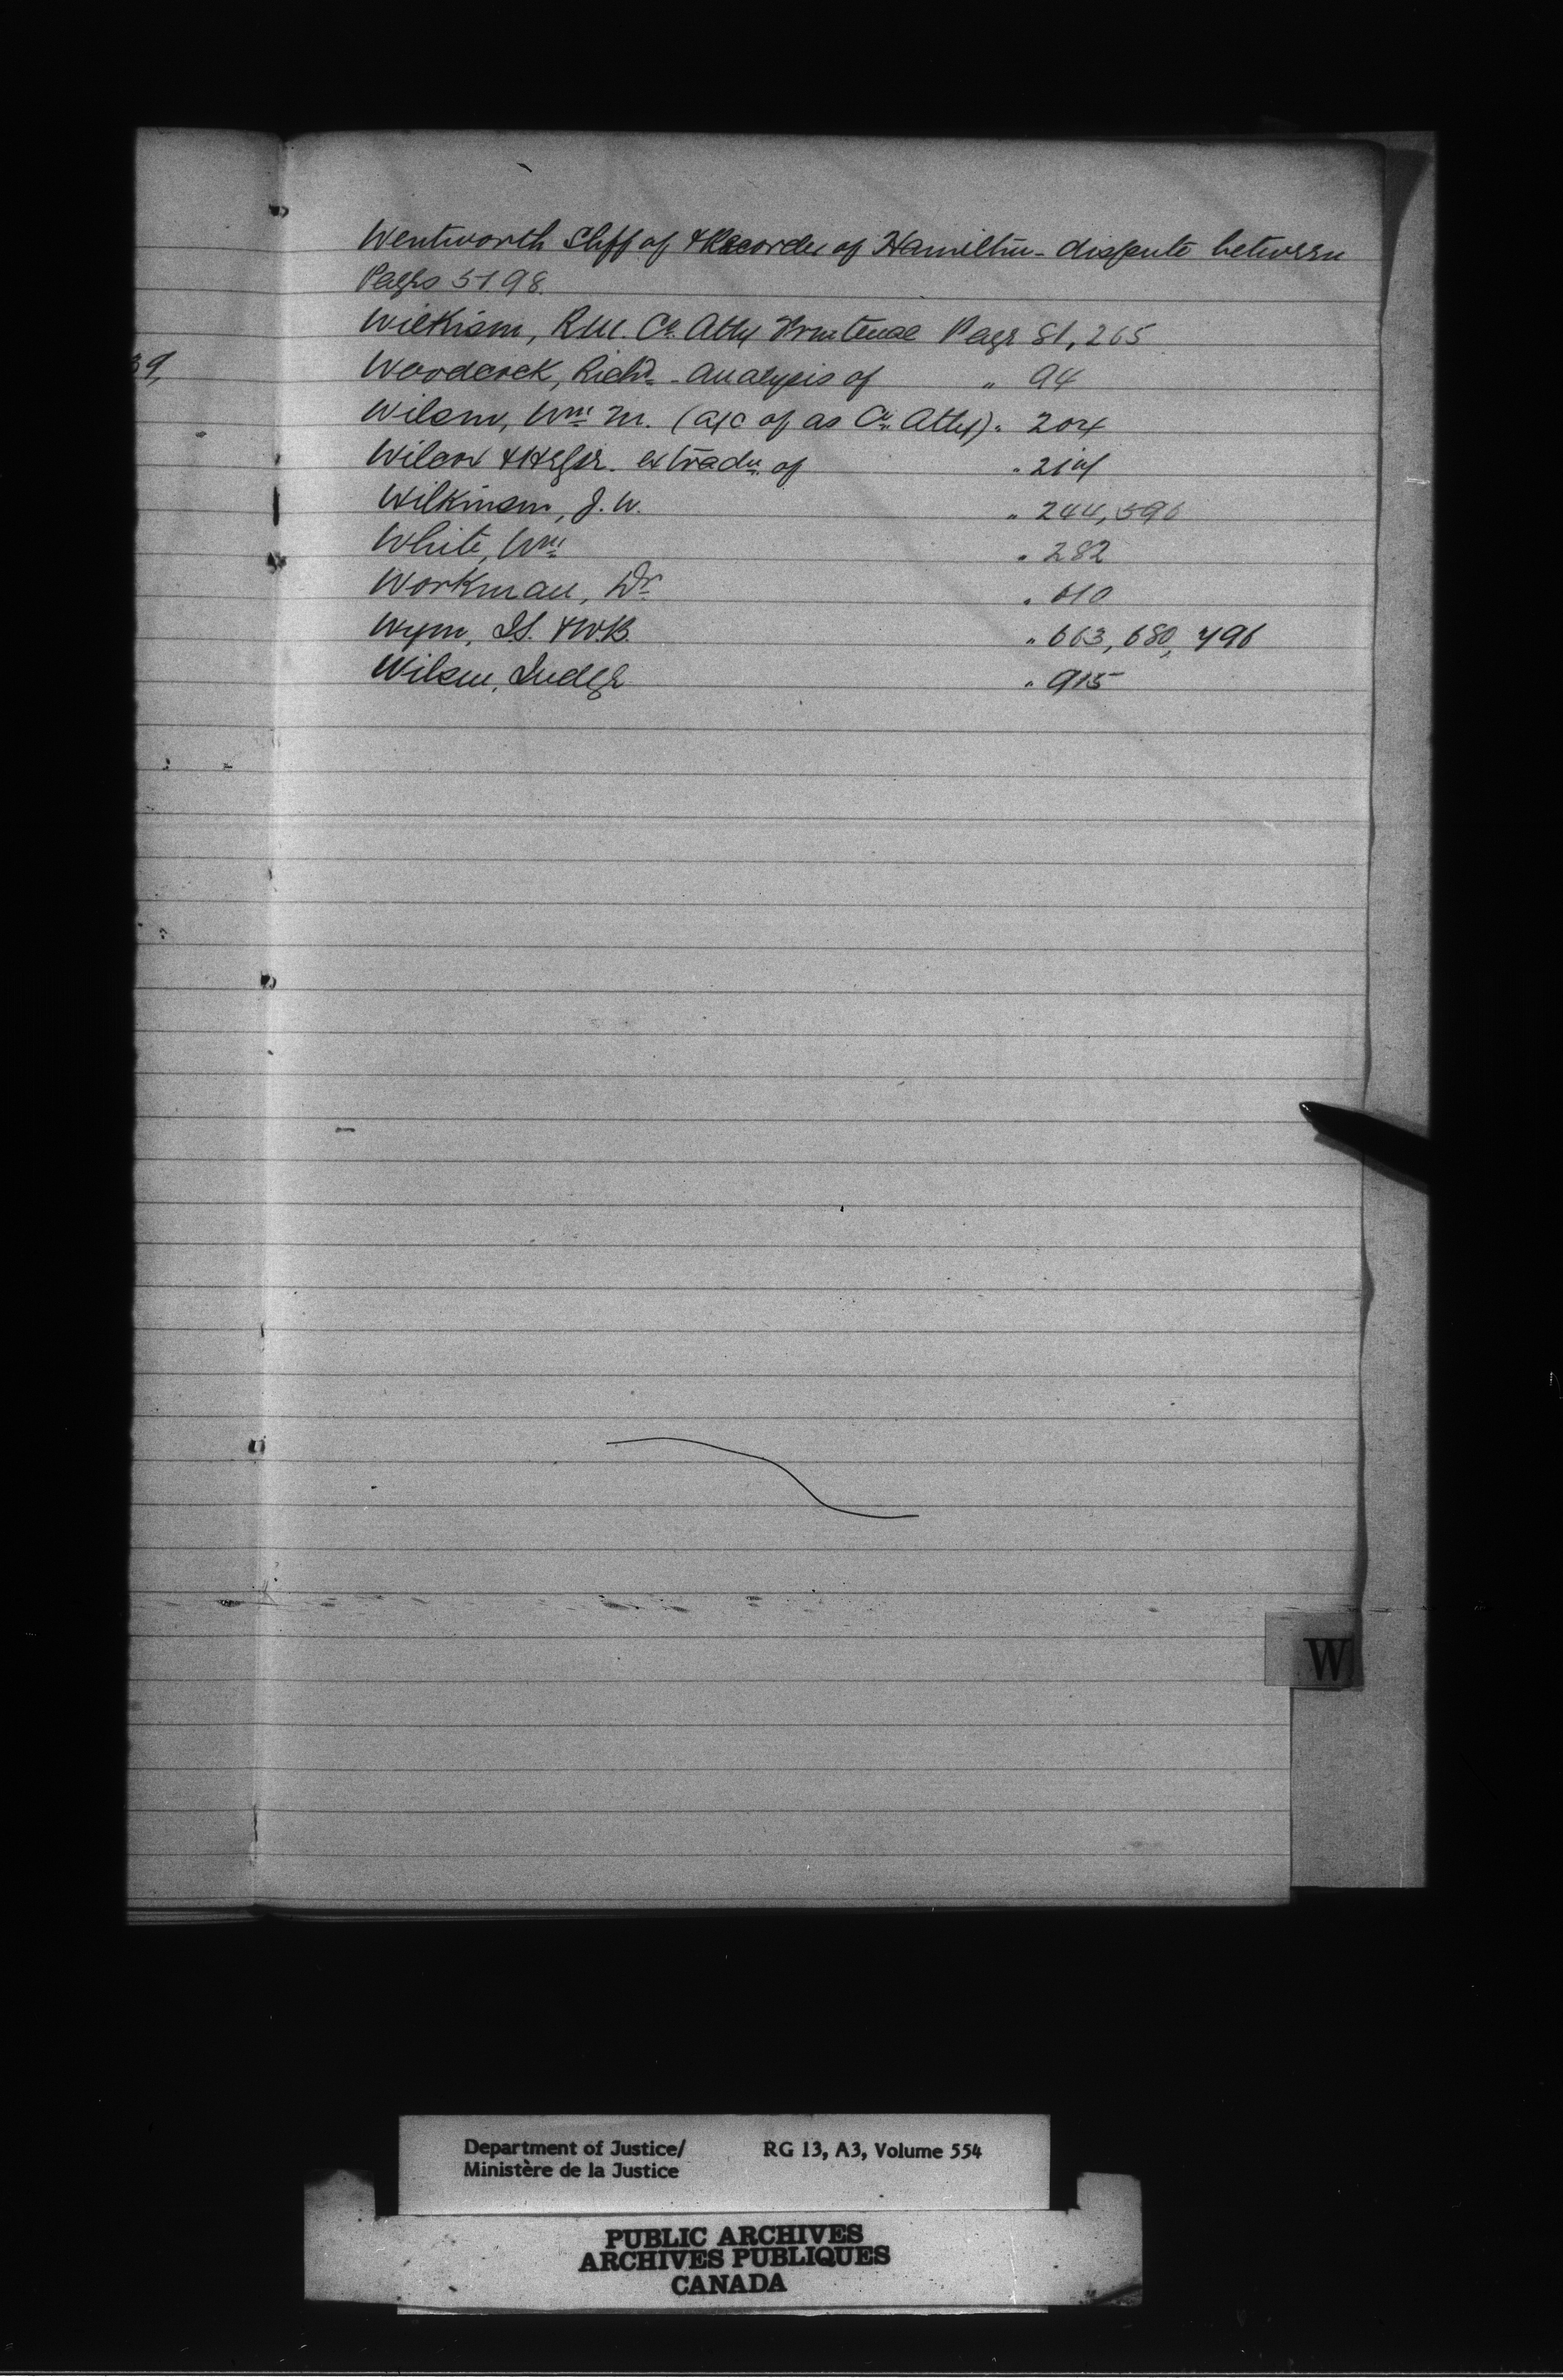 Wentworth Shff of & Recorder of Hamilton - dispute between
Pages 51.98.
Wilkison, R.M. Co. Atty Frontenac Page 81, 265
39,
Woodcock, Richd - analysis of " 94
Wilson, Wm M. (a/c of as Co. Atty) " 204
Wilcox & extradn of "
Wilkinson, J. W. " 244, 596
White, Wm " 282
Workman, Dr " 610
Wynn, & W.B. " 663, 680, 796
Wilson, Judge " 915
W
Department of Justice/ RG 13, A3, Volume 554
Ministère de la Justice
PUBLIC ARCHIVES
ARCHIVES PUBLIQUES
CANADA